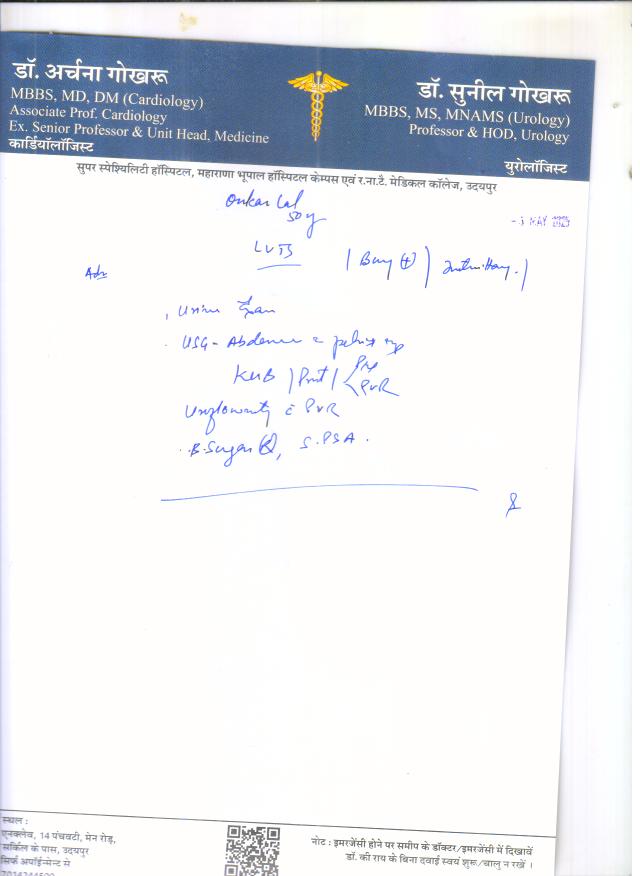 डॉ. अर्चना गोखरू
MBBS, MD, DM (Cardiology)
Associate Prof. Cardiology
Ex. Senior Professor & Unit Head, Medicine
कार्डियॉलॉजिस्ट
डॉ. सुनील गोखरू
MBBS, MS, MNAMS (Urology)
Professor & HOD, Urology
युरोलॉजिस्ट
सुपर स्पेश्यिलिटी हॉस्पिटल, महाराणा भूपाल हॉस्पिटल केम्पस एवं र.ना.टै. मेडिकल कॉलेज, उदयपुर
Onkar Lal
50 y
MAY 2023
LUTS
Adv
Urine
USG - Abdomen
KUB / Prost / PVR
Uroflowmetry c PVR
B. Sugar (R), S. PSA.
स्थल :
एनक्लेव, 14 पंचवटी, मेन रोड़,
सर्किल के पास, उदयपुर
सिर्फ अपॉईन्मेन्ट से
नोट : इमरजेंसी होने पर समीप के डॉक्टर/इमरजेंसी में दिखावें
डॉ. की राय के बिना दवाई स्वयं शुरू/चालु न रखें ।